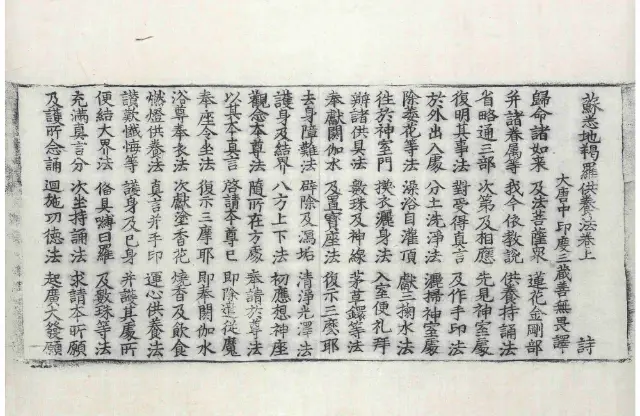 蘇悉地羯羅供養法卷上 詩
大唐中印度三藏善無畏譯
歸命諸如來 及法菩薩衆 蓮花金剛部
并諸眷属等 我今依教說 供養持誦法
省略通三部 次第及相應 先見神室處
復明其事法 對受得真言 及作手印法
於外出入處 分土洗淨法 灑掃神室處
除萎花等法 澡浴自灌頂 獻三掬水法
往於神室門 換衣灑身法 入室便礼拜
辦諸供具法 數珠及神線 茅草鐶等法
奉獻閼伽水 及置寳座法 復示三麼耶
去身障難法 辟除及潟垢 清淨光澤法
護身及結界 八方上下法 初應想神座
觀念本尊法 隨所在方處 奉請於尊法
以其本真言 啓請本尊已 即除遣從魔
奉座令坐法 復示三摩耶 即奉閼伽水
浴尊奉衣法 次獻塗香花 燒香及飲食
燃燈供養法 真言并手印 運心供養法
讚歎懺悔等 護身及已身 并護其處所
便結大界法 俻具嗨曰羅 及數珠等法
充滿真言分 次坐持誦法 求請本所願
及護所念誦 迴施功德法 起廣大發願